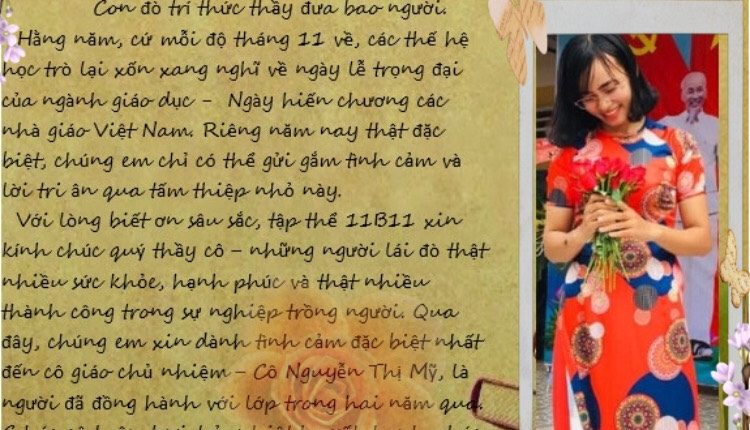 Con đò trí thức thầy đưa bao người.
Hằng năm, cứ mỗi độ tháng 11 về, các thế hệ
học trò lại xốn xang nghĩ về ngày lễ trọng đại
của ngành giáo dục - Ngày hiến chương các
nhà giáo Việt Nam. Riêng năm nay thật đặc
biệt, chúng em chỉ có thể gửi gắm tình cảm và
lời tri ân qua tấm thiệp nhỏ này.
Với lòng biết ơn sâu sắc, tập thể 11B11 xin
kính chúc quý thầy cô – những người lái đò thật
nhiều sức khỏe, hạnh phúc và thật nhiều
thành công trong sự nghiệp trồng người. Qua
đây, chúng em xin dành tình cảm đặc biệt nhất
đến cô giáo chủ nhiệm – Cô Nguyễn Thị Mỹ, là
người đã đồng hành với lớp trong hai năm qua.